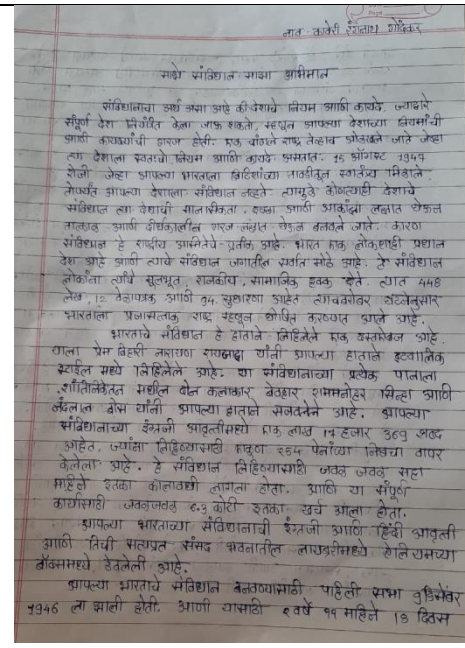 नाव कावेरी रंगनाथ
माझे संविधान माझा अभिमान
संविधानाचा अर्थ असा आहे की देशाचे नियम आणि कायदे. ज्याद्वारे
संपूर्ण देश नियंत्रित केला जाऊ शकतो, म्हणून आपल्या देशाच्या नियमांची
आणि कायद्यांची धारणा होती. एक चांगले राष्ट्र तेव्हाच ओळखले जाते जेव्हा
त्या देशाला स्वतःचे नियम आणि कायदे असतात. 15 ऑगस्ट 1947
रोजी जेव्हा आपल्या भारताला ब्रिटिशांच्या तावडीतून स्वातंत्र्य मिळाले.
तोपर्यंत आपल्या देशाला संविधान नव्हते. त्यामुळे कोणत्याही देशाचे
संविधान त्या देशाची मानसिकता, इच्छा आणि आकांक्षा लक्षात घेऊन
तात्काळ आणि दीर्घकालीन गरज लक्षात घेऊन बनवले जाते. कारण
संविधान हे राष्ट्रीय अस्मितेचे प्रतीक आहे. भारत एक लोकशाही प्रधान
देश आहे आणि त्याचे संविधान जगातील सर्वात मोठे आहे. हे संविधान
लोकांना त्यांचे मूलभूत, राजकीय, सामाजिक हक्क देते. त्यात 448
लेख, 12 वेळापत्रक आणि 94 सुधारणा आहेत त्याचबरोबर घटनेनुसार
भारताला प्रजासत्ताक राष्ट्र म्हणून घोषित करण्यात आले आहे.
भारताचे संविधान हे हाताने लिहिलेले एक दस्तावेज आहे.
याला प्रेम बिहारी नारायण रायजादा यांनी आपल्या हाताने इटालिक
स्टाईल मध्ये लिहिलेले आहे. या संविधानाच्या प्रत्येक पानाला
शांतिनिकेतन मधील दोन कलाकार बेवहार राममनोहर सिन्हा आणि
नंदलाल बोस यांनी आपल्या हाताने सजवलेले आहे. आपल्या
संविधानाच्या इंग्रजी आवृत्तीमध्ये एक लाख 17 हजार 369 शब्द
आहेत. ज्यांना लिहिण्यासाठी एकूण 254 पेनांच्या निबचा वापर
केलेला आहे. हे संविधान लिहिण्यासाठी जवळ जवळ सहा
महिने इतका कालावधी लागला होता. आणि या संपूर्ण
कार्यासाठी जवळजवळ 6.3 कोटी इतका खर्च आला होता.
आपल्या भारताच्या संविधानाची इंग्रजी आणि हिंदी आवृत्ती
आणि तिची सत्यप्रत संसद भवनातील लायब्ररीमध्ये हेलियमच्या
बॉक्समध्ये ठेवलेली आहे.
आपल्या भारताचे संविधान बनवण्यासाठी पाहिली सभा 9 डिसेंबर
1946 ला झाली होती. आणी यासाठी २ वर्षे ११ महिने 18 दिवस